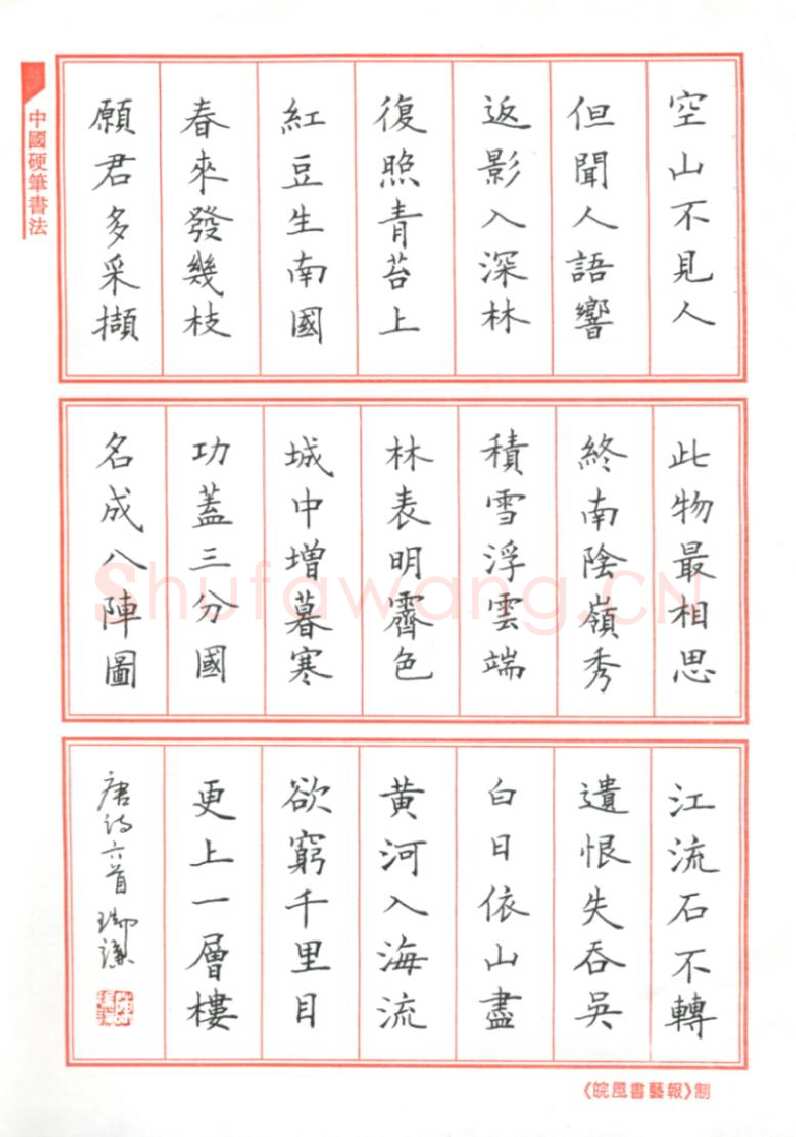 中國硬筆書法
空山不見人
但聞人語響
返影入深林
復照青苔上
紅豆生南國
春來發幾枝
願君多采擷
此物最相思
終南陰嶺秀
積雪浮雲端
林表明霽色
城中增暮寒
功蓋三分國
名成八陣圖
江流石不轉
遺恨失吞吳
白日依山盡
黃河入海流
欲窮千里目
更上一層樓
唐詩六首 瑞謙
《皖風書藝報》制
Shufawang.CN